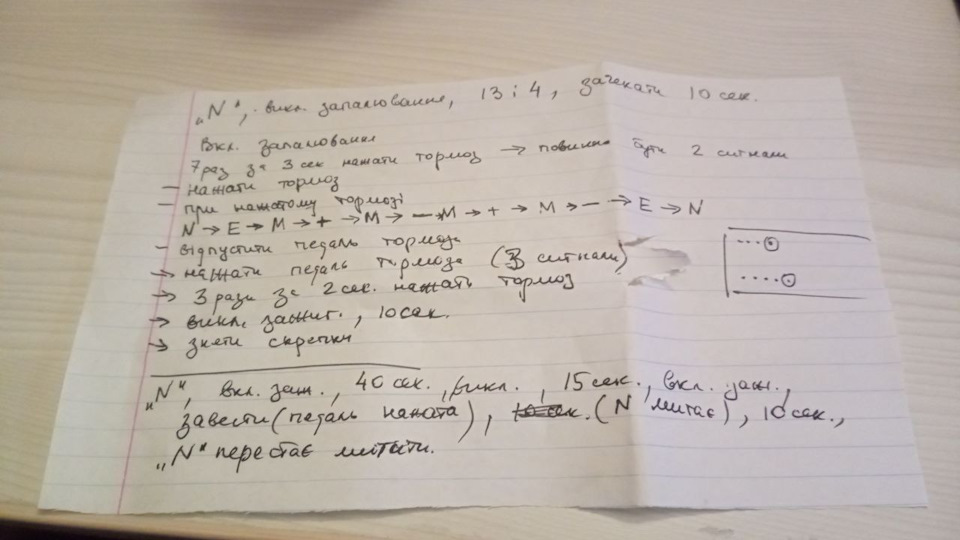 „N“, викл. запалювання, 13 і 4, зачекати 10 сек.
Вкл. запалювання
7 раз за 3 сек нажати тормоз → повинно бути 2 сигнали
— нажати тормоз
— при нажатому тормозі
N → E → M → + → M → — → M → + → M → — → E → N
— відпустити педаль тормоза
→ нажати педаль тормоза (3 сигнали)
→ 3 рази за 2 сек. нажать тормоз
→ викл. зажиг., 10 сек.
→ зняти скрепки
„N“, вкл. заж., 40 сек., викл., 15 сек., вкл. заж.,
завести (педаль нажата), (N мигає), 10 сек.,
„N“ перестає мигати.